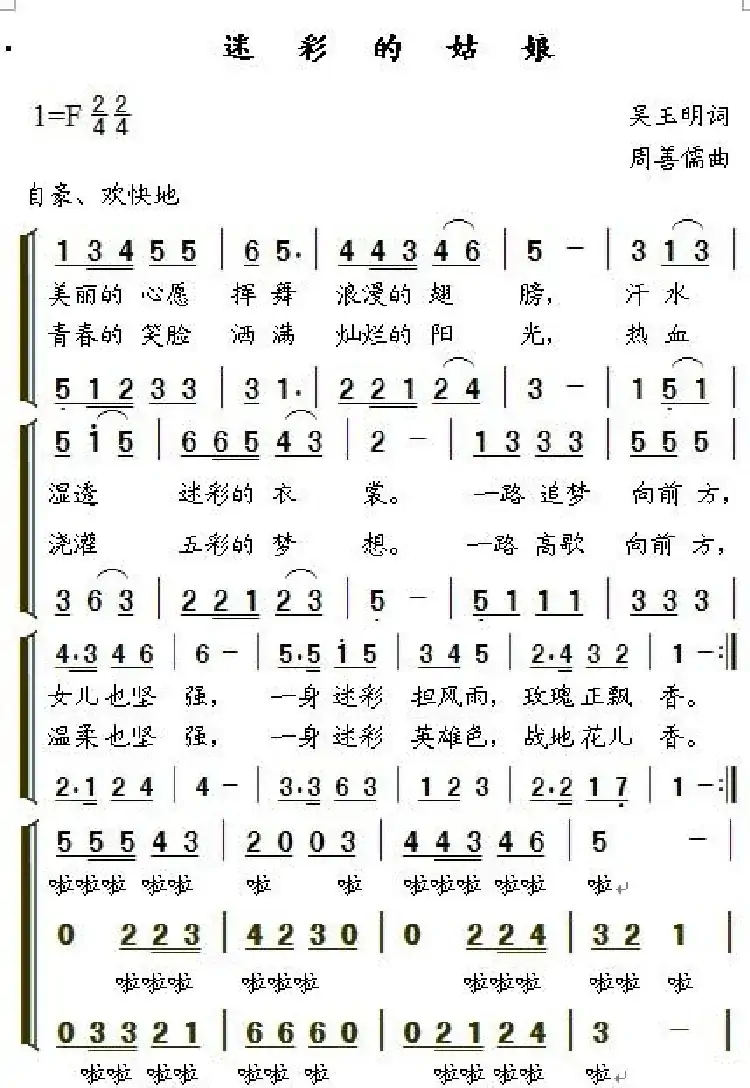 迷彩的姑娘
1=F 2/4 2/4
吴玉明词
周善儒曲
自豪、欢快地
1 3 4 5 5 | 6 5. | 4 4 3 4 6 | 5 - | 3 1 3 |
美丽的 心愿 挥 舞 浪漫的 翅 膀， 汗 水
青春的 笑脸 洒 满 灿烂的 阳 光， 热 血
5 1 2 3 3 | 3 1. | 2 2 1 2 4 | 3 - | 1 5 1 |
5 1 5 | 6 6 5 4 3 | 2 - | 1 3 3 3 | 5 5 5 |
湿透 迷彩的 衣 裳。 一路 追梦 向前 方，
浇灌 五彩的 梦 想。 一路 高歌 向前 方，
3 6 3 | 2 2 1 2 3 | 5 - | 5 1 1 1 | 3 3 3 |
4.3 4 6 | 6 - | 5.5 1 5 | 3 4 5 | 2.4 3 2 | 1 - :||
女儿也坚 强， 一身 迷彩 担风雨， 玫瑰正飘 香。
温柔也坚 强， 一身 迷彩 英雄色， 战地花儿 香。
2.1 2 4 | 4 - | 3.3 6 3 | 1 2 3 | 2.2 1 7 | 1 - :||
5 5 5 4 3 | 2 0 0 3 | 4 4 3 4 6 | 5 - |
啦啦啦 啦啦 啦 啦 啦啦啦 啦啦 啦
0 2 2 3 | 4 2 3 0 | 0 2 2 4 | 3 2 1 |
啦啦啦 啦啦啦 啦啦啦 啦啦 啦
0 3 3 2 1 | 6 6 6 0 | 0 2 1 2 4 | 3 - |
啦啦 啦啦 啦啦 啦 啦啦 啦啦 啦